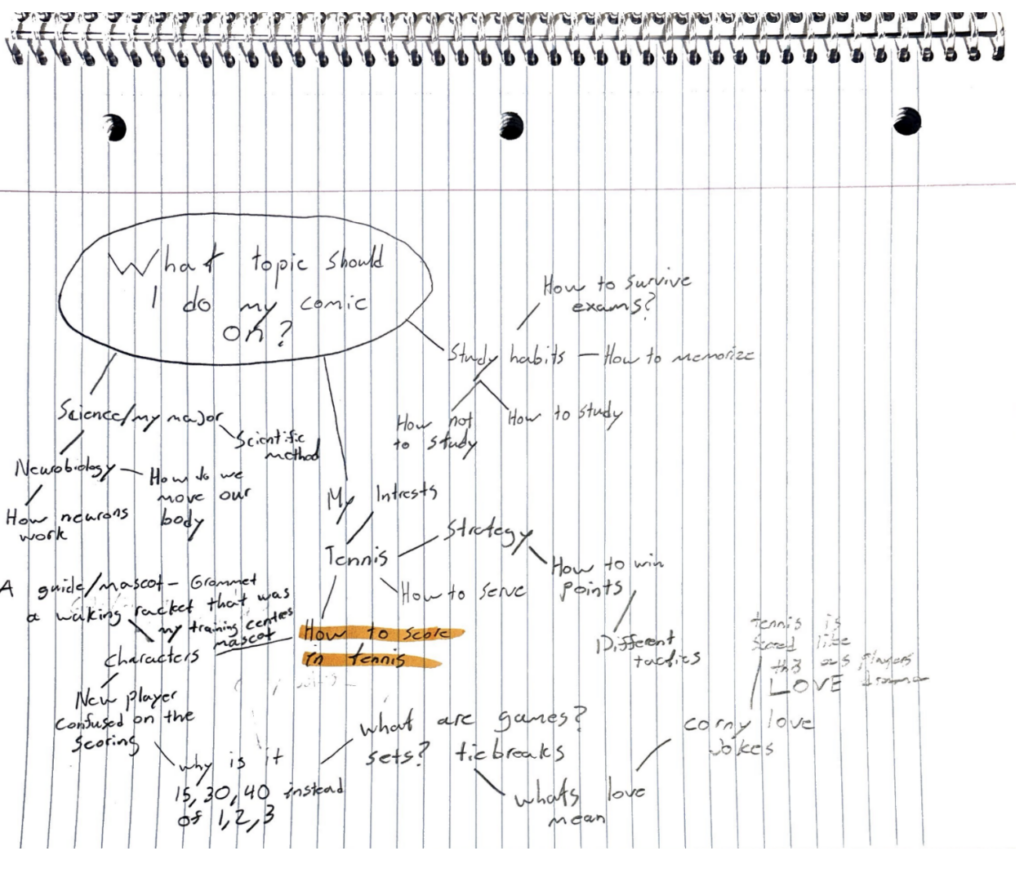 What topic should
I do my comic
on?
How to survive
exams?
Study habits — How to memorize
How not
to study
How to study
Science/my major
Scientific
method
Neurobiology — How do we
move our
body
How neurons
work
My Intrests
Tennis
Strategy
How to win
points
How to serve
Different
tactics
A guide/mascot - Grommet
a walking racket that was
my training centres
mascot
How to score
in tennis
Characters
New player
confused on the
scoring
why is it
15, 30, 40 instead
of 1, 2, 3
what are games?
sets? ticbreaks
whats love
mean
corny love
jokes
tennis is
scored like
players
LOVE